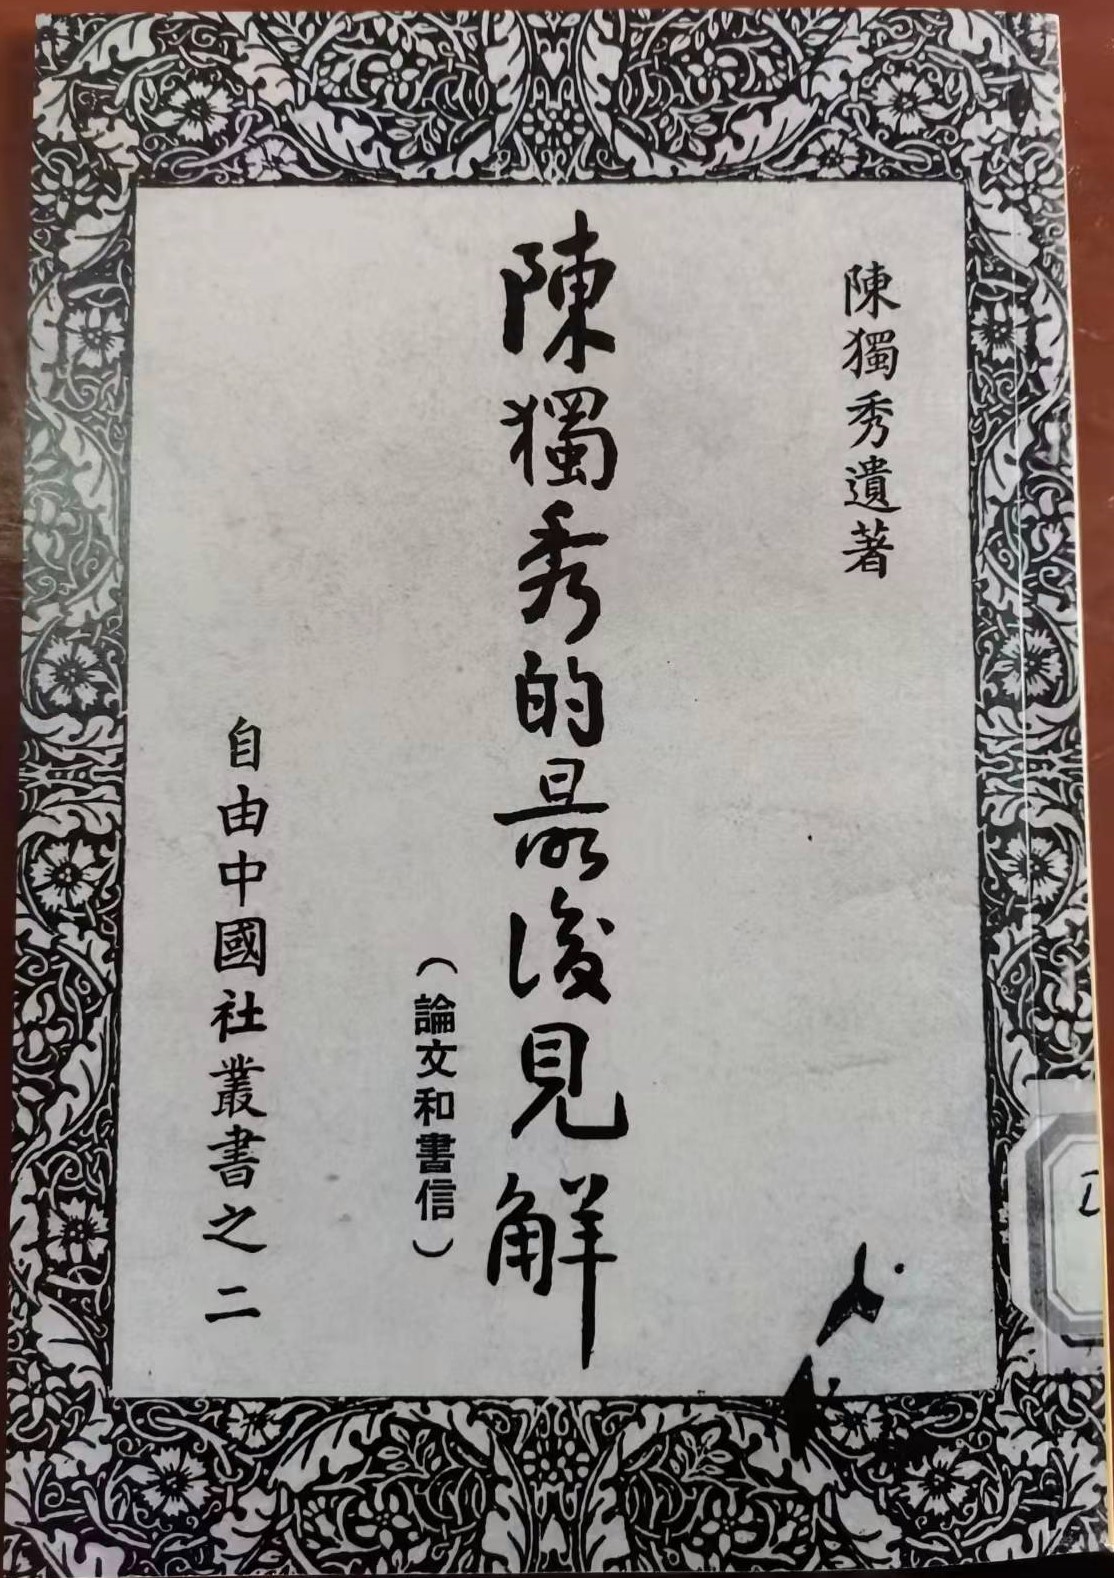 陳獨秀遺著
陳獨秀的最後見解
（論文和書信）
自由中國社叢書之二